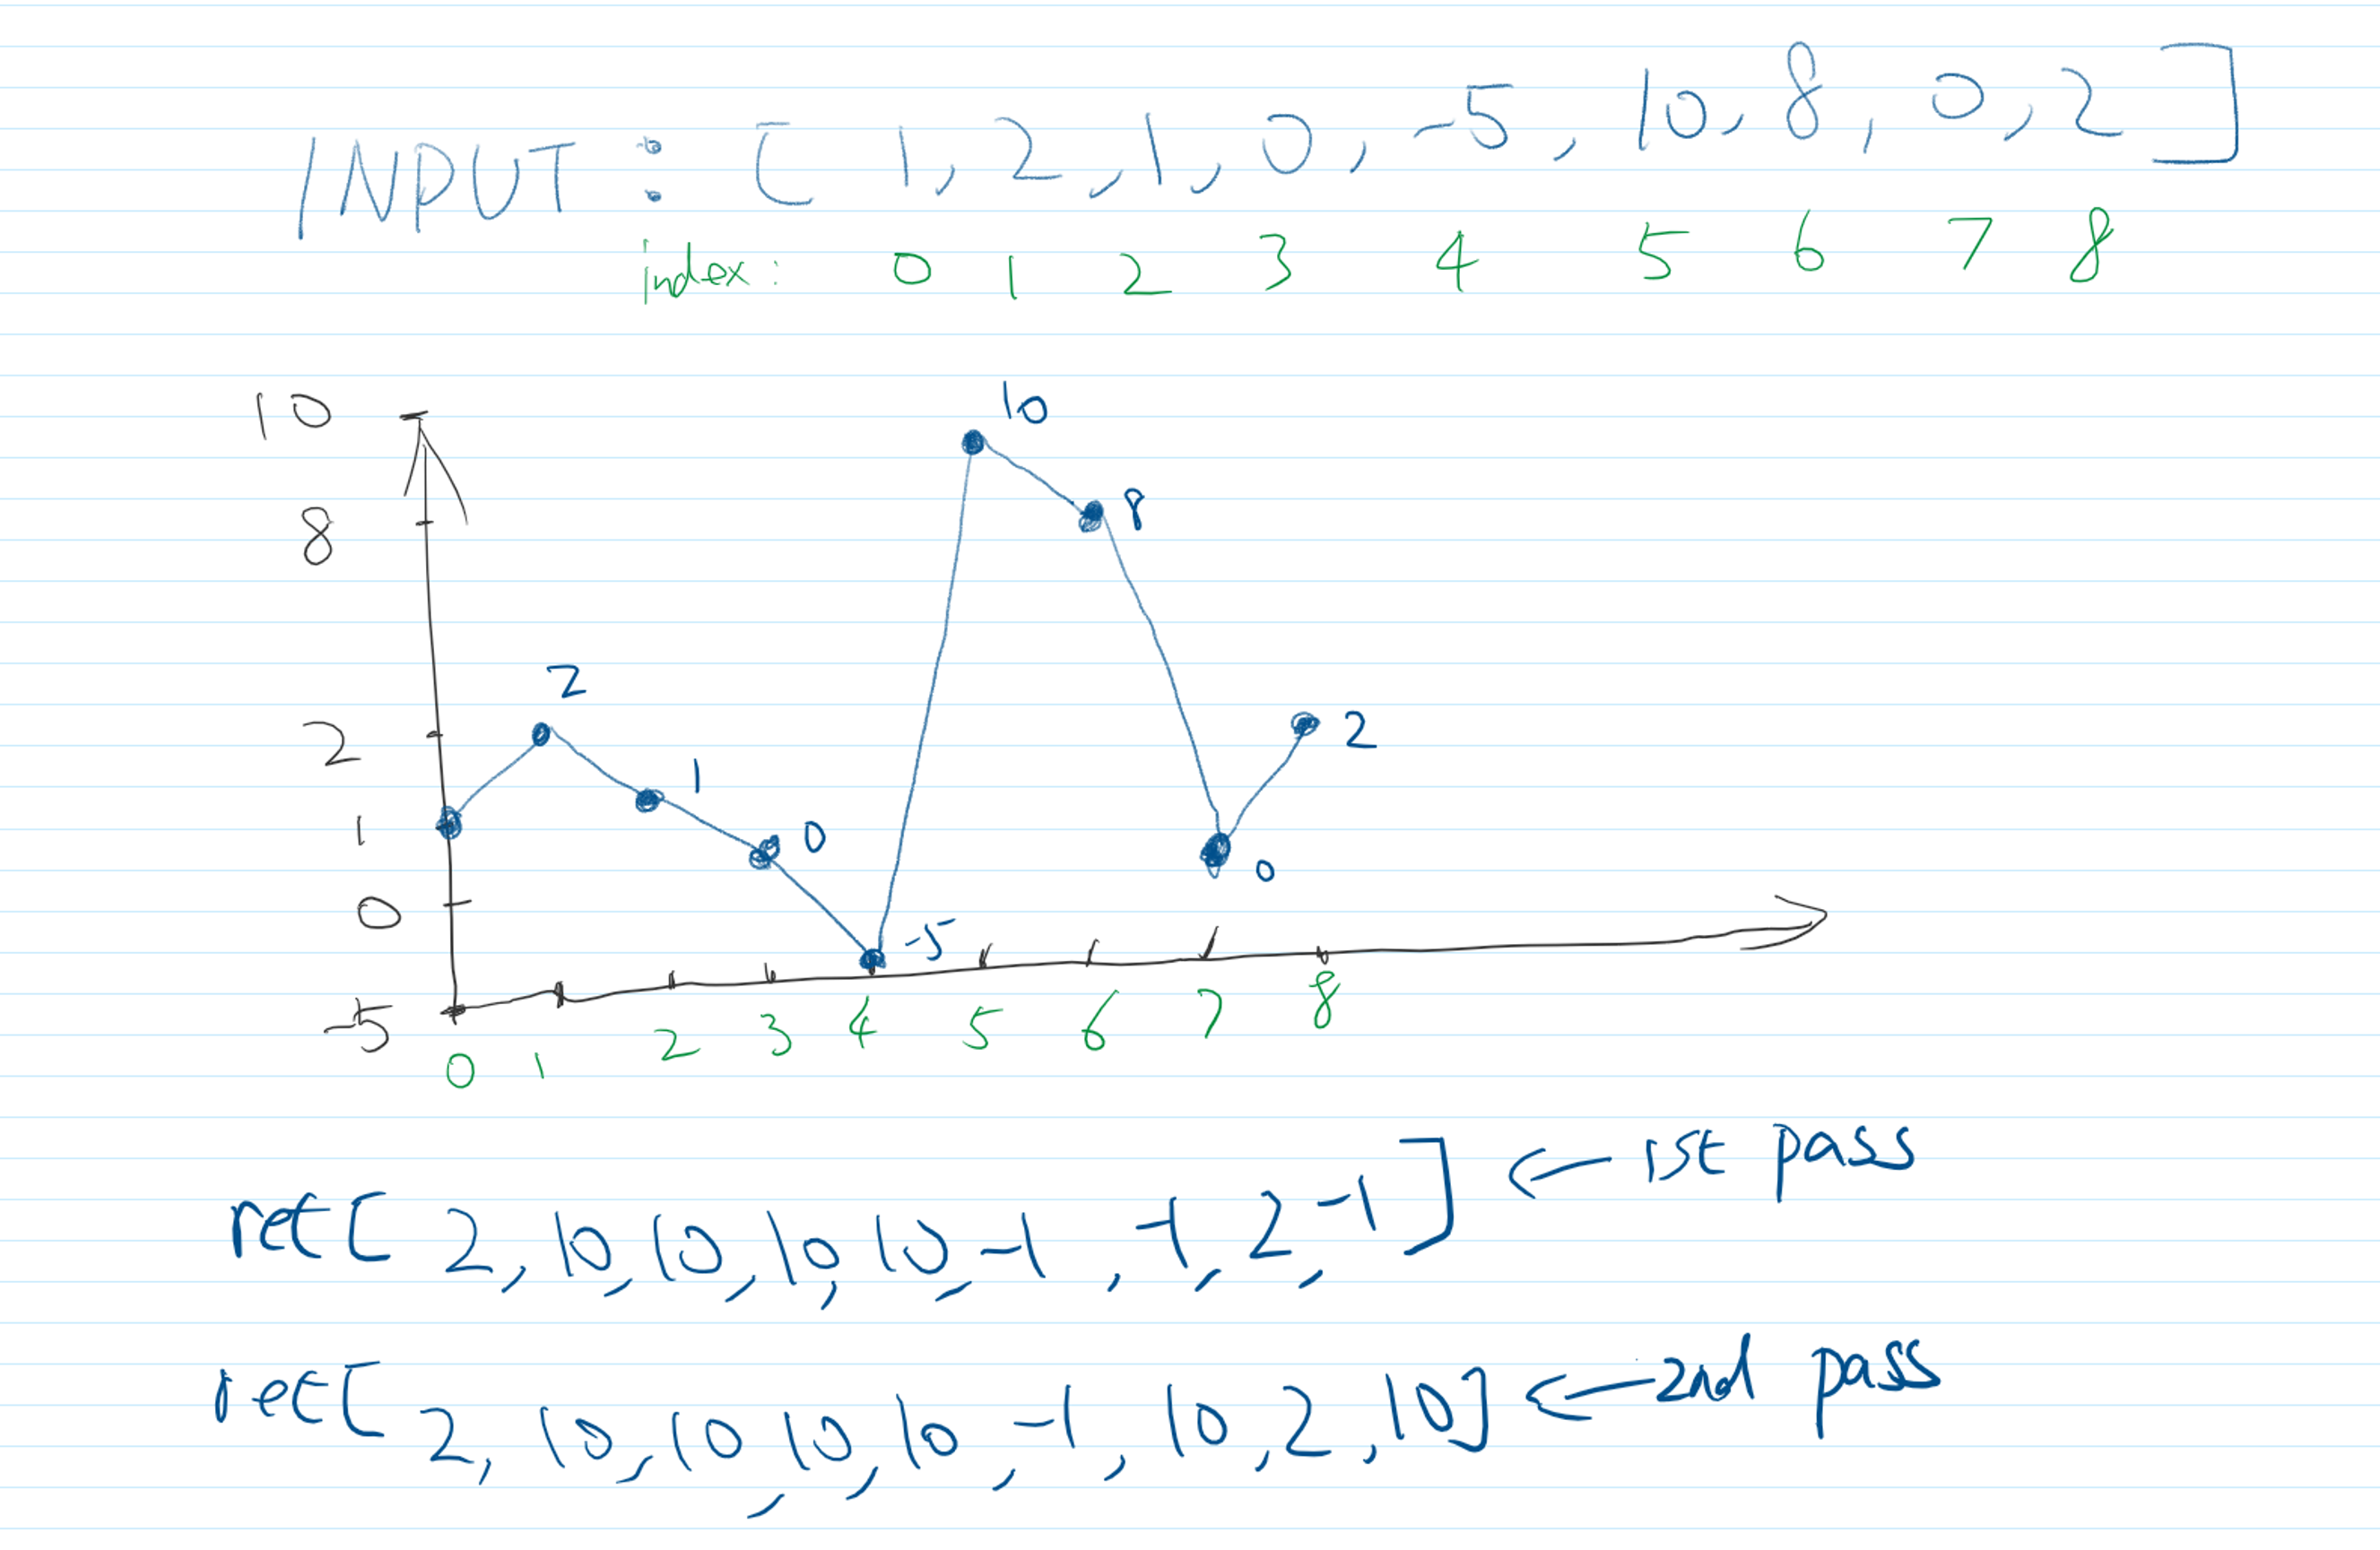 INPUT : [ 1, 2, 1, 0, -5, 10, 8, 0, 2 ]
index : 0 1 2 3 4 5 6 7 8
10
10
8
8
2
2
2
1
1
0
0
0
-5
-5
0 1 2 3 4 5 6 7 8
ret [ 2, 10, 10, 10, 10, -1, -1, 2, -1 ] ← 1st pass
ret [ 2, 10, 10, 10, 10, -1, 10, 2, 10 ] ← 2nd pass